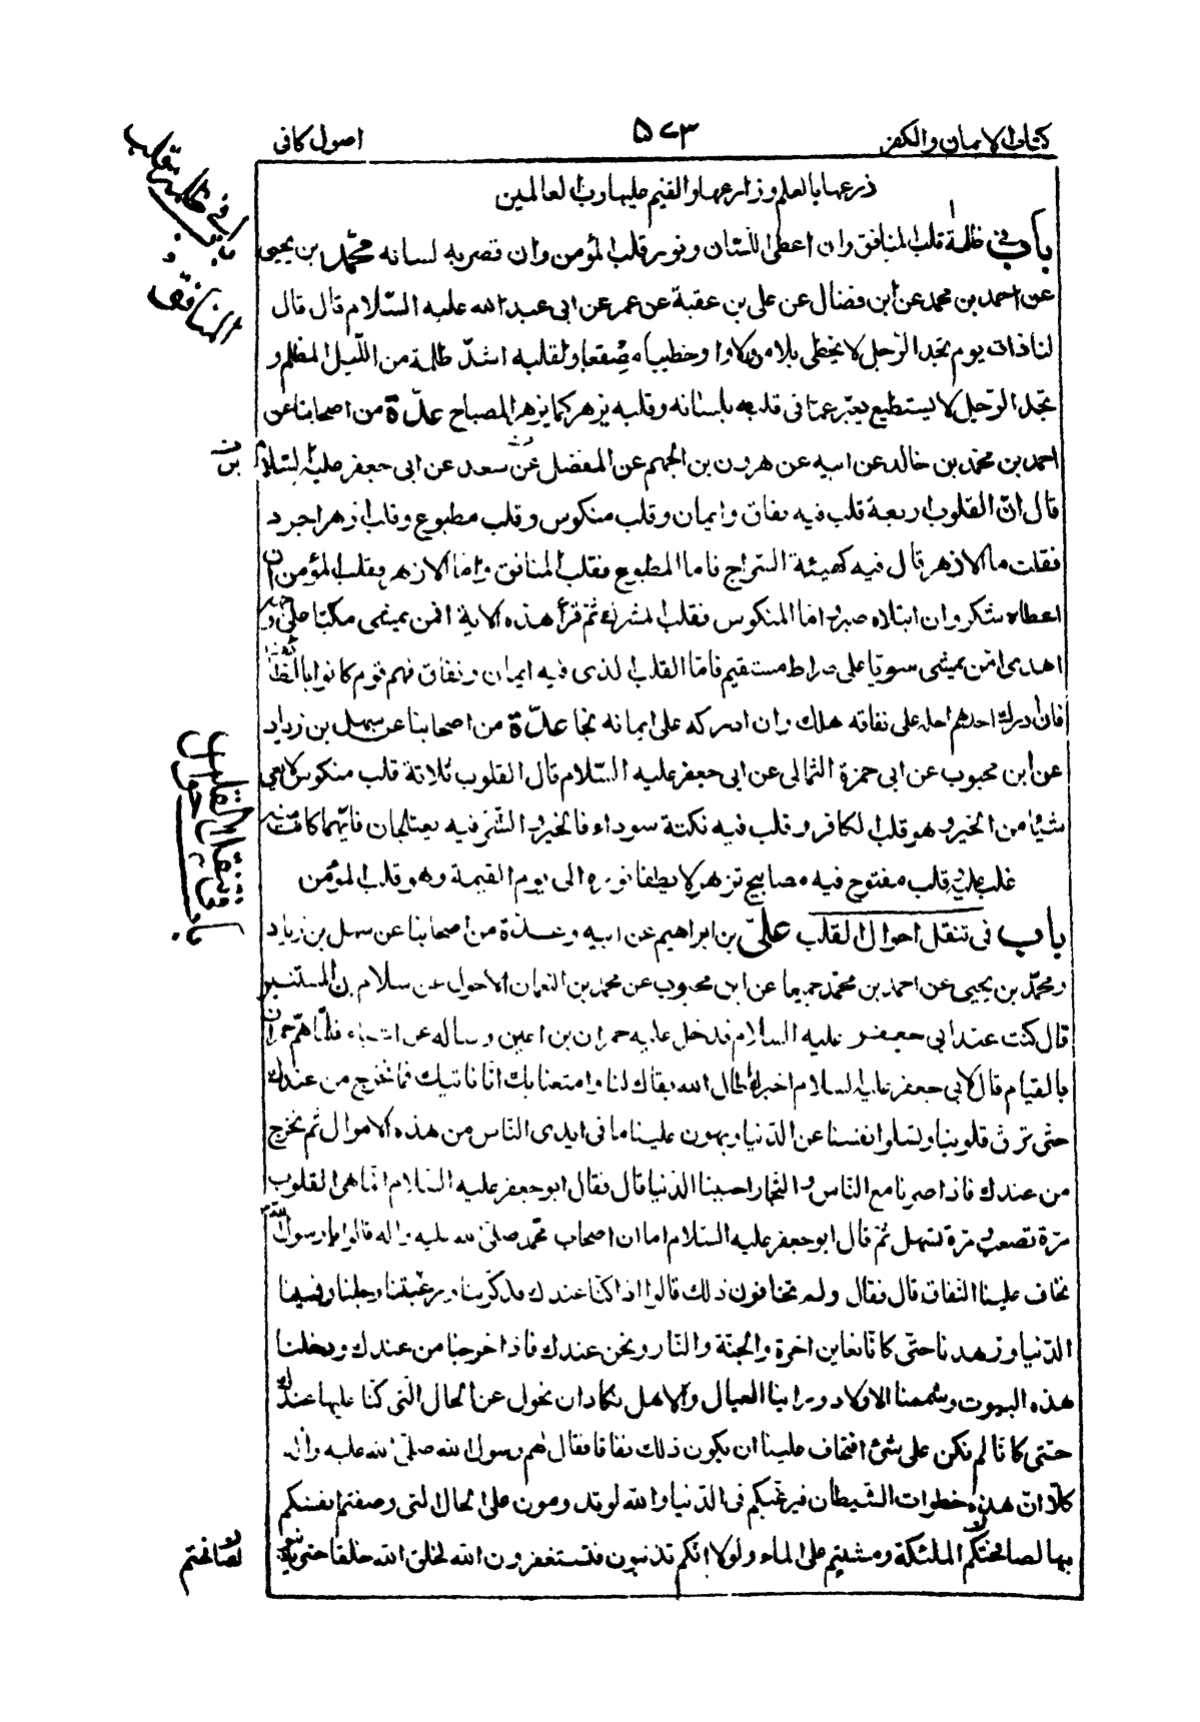 كتاب الايمان والكفر ٥٧٣ اصول كافى
ذرعها بالعلم وزارعها والقيم عليها رب العالمين
باب فى ظلمة قلب المنافق وان اعطى اللسان ونور قلب المؤمن وان قصر به لسانه محمّد بن يحيى
عن احمد بن محمد عن ابن فضال عن على بن عقبة عن عمر عن ابى عبد الله عليه السّلام قال قال
لنا ذات يوم تجد الرّجل لا يخطى بلام ولا واو خطيبا مصقعا ولقلبه اشدّ ظلمة من اللّيل المظلم و
تجد الرّجل لا يستطيع يعبّر عمّا فى قلبه بلسانه وقلبه يزهر كما يزهر المصباح عدّة من اصحابنا عن
احمد بن محمّد بن خالد عن ابيه عن هرون بن الجهم عن المفضل عن سعد عن ابى جعفر عليه السّلام
بن
قال انّ القلوب اربعة قلب فيه نفاق وايمان وقلب منكوس وقلب مطبوع وقلب ازهر اجرد
فقلت ما الازهر قال فيه كهيئة السّراج فاما المطبوع فقلب المنافق وامّا الازهر فقلب المؤمن ان
اعطاه شكر وان ابتلاه صبر واما المنكوس فقلب المشرك ثمّ قرأ هذه الاية افمن يمشى مكبّا على وجهه
اهدى امّن يمشى سويّا على صراط مستقيم فامّا القلب الذى فيه ايمان ونفاق فهم قوم كانوا بالطّائف
فان ادرك احدهم اجله على نفاقه هلك وان ادركه على ايمانه نجا عدّة من اصحابنا عن سهل بن زياد
عن ابن محبوب عن ابى حمزة الثمالى عن ابى جعفر عليه السّلام قال القلوب ثلاثة قلب منكوس لا يعى
شيئا من الخير وهو قلب الكافر وقلب فيه نكتة سوداء فالخير والشّرّ فيه يعتلجان فايّهما كانت منه
غلب عليه وقلب مفتوح فيه مصابيح تزهر لا يطفا نوره الى يوم القيمة وهو قلب المؤمن
باب فى تنقل احوال القلب علىّ بن ابراهيم عن ابيه وعدّة من اصحابنا عن سهل بن زياد
ومحمّد بن يحيى عن احمد بن محمّد جميعا عن ابن محبوب عن محمد بن النعمان الاحول عن سلام بن المستنير
قال كنت عند ابى جعفر عليه السلام فدخل عليه حمران بن اعين وساله عن اشياء فلمّا همّ حمران
بالقيام قال لابى جعفر عليه السلام اخبرك اطال الله بقاك لنا وامتعنا بك انّا ناتيك فما نخرج من عندك
حتى ترقّ قلوبنا وتسلوا انفسنا عن الدّنيا ويهون علينا ما فى ايدى النّاس من هذه الاموال ثم نخرج
من عندك فاذا صرنا مع النّاس والتّجار احببنا الدّنيا قال فقال ابو جعفر عليه السّلام انّما هى القلوب
مرّة تصعب ومرّة تسهل ثمّ قال ابو جعفر عليه السّلام اما ان اصحاب محمّد صلّى الله عليه واله قالوا يا رسول الله
نخاف علينا النّفاق قال فقال ولم تخافون ذلك قالوا اذا كنّا عندك فذكّرتنا ورغّبتنا وجلنا ونسينا
الدّنيا وزهدنا حتّى كانّا نعاين اخرة والجنّة والنّار ونحن عندك فاذا خرجنا من عندك ودخلنا
هذه البيوت وشممنا الاولاد وراينا العيال والاهل نكاد ان نحول عن الحال الّتى كنّا عليها عندك
حتّى كانّا لم نكن على شئ افتخاف علينا ان يكون ذلك نفاقا فقال لهم رسول الله صلّى الله عليه واله
كلّا انّ هذه خطوات الشّيطان فيرغّبكم فى الدّنيا والله لو تدومون على الحال التى وصفتم انفسكم
بها لصافحتكم الملئكة ومشيتم على الماء ولولا انّكم تذنبون فتستغفرون الله لخلق الله خلقا حتى يذنبوا
لصافحتم
باب فى ظلمة قلب
المنافق
باب فى تنقل احوال القلب